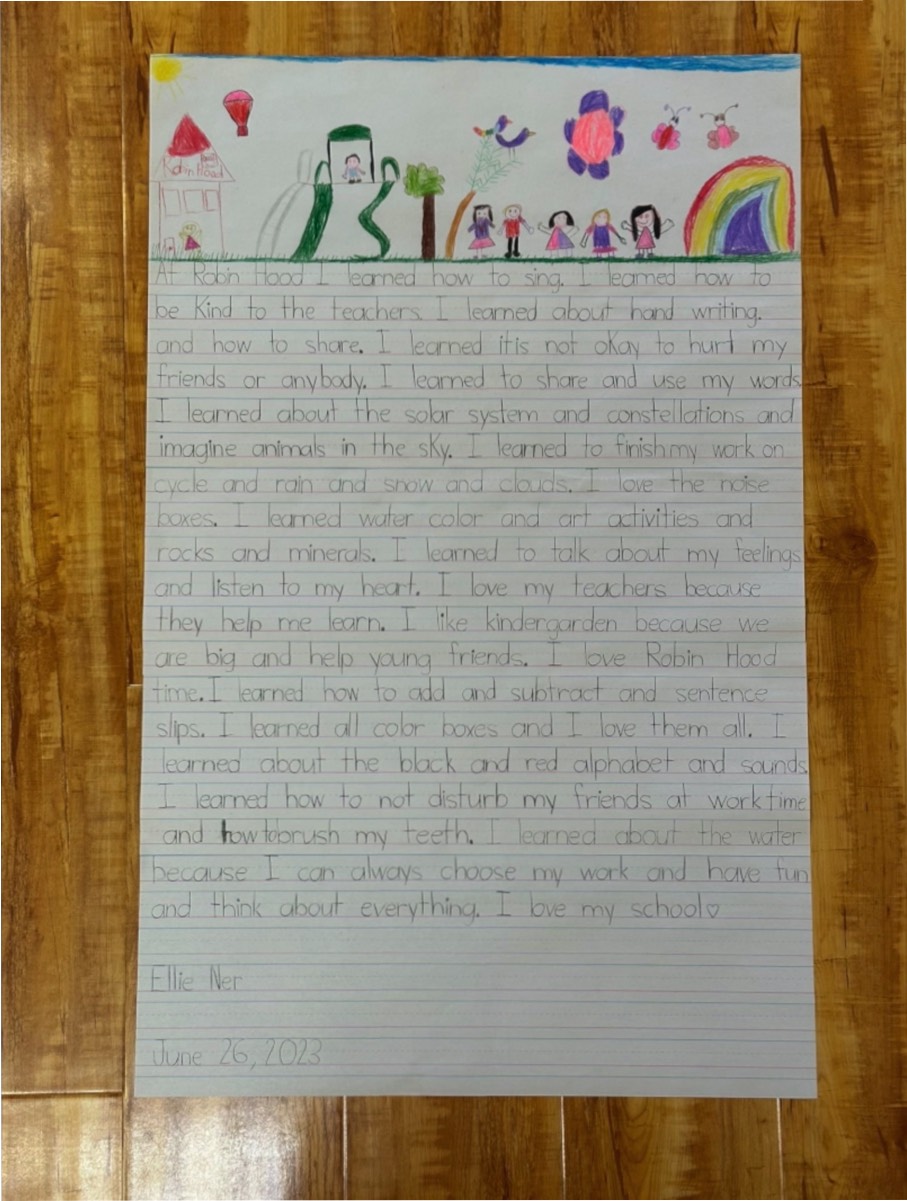 Robin Hood
At Robin Hood I learned how to sing. I learned how to
be kind to the teachers. I learned about hand writing.
and how to share. I learned itis not okay to hurt my
friends or anybody. I learned to share and use my words.
I learned about the solar system and constellations and
imagine animals in the sky. I learned to finish my work on
cycle and rain and snow and clouds. I love the noise
boxes. I learned water color and art activities and
rocks and minerals. I learned to talk about my feelings
and listen to my heart. I love my teachers because
they help me learn. I like kindergarden because we
are big and help young friends. I love Robin Hood
time. I learned how to add and subtract and sentence
slips. I learned all color boxes and I love them all. I
learned about the black and red alphabet and sounds.
I learned how to not disturb my friends at work time
and how to brush my teeth. I learned about the water
because I can always choose my work and have fun
and think about everything. I love my school♡
Ellie Ner
June 26, 2023